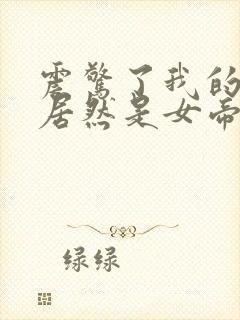 震惊了我的
居然是女帝
绿绿